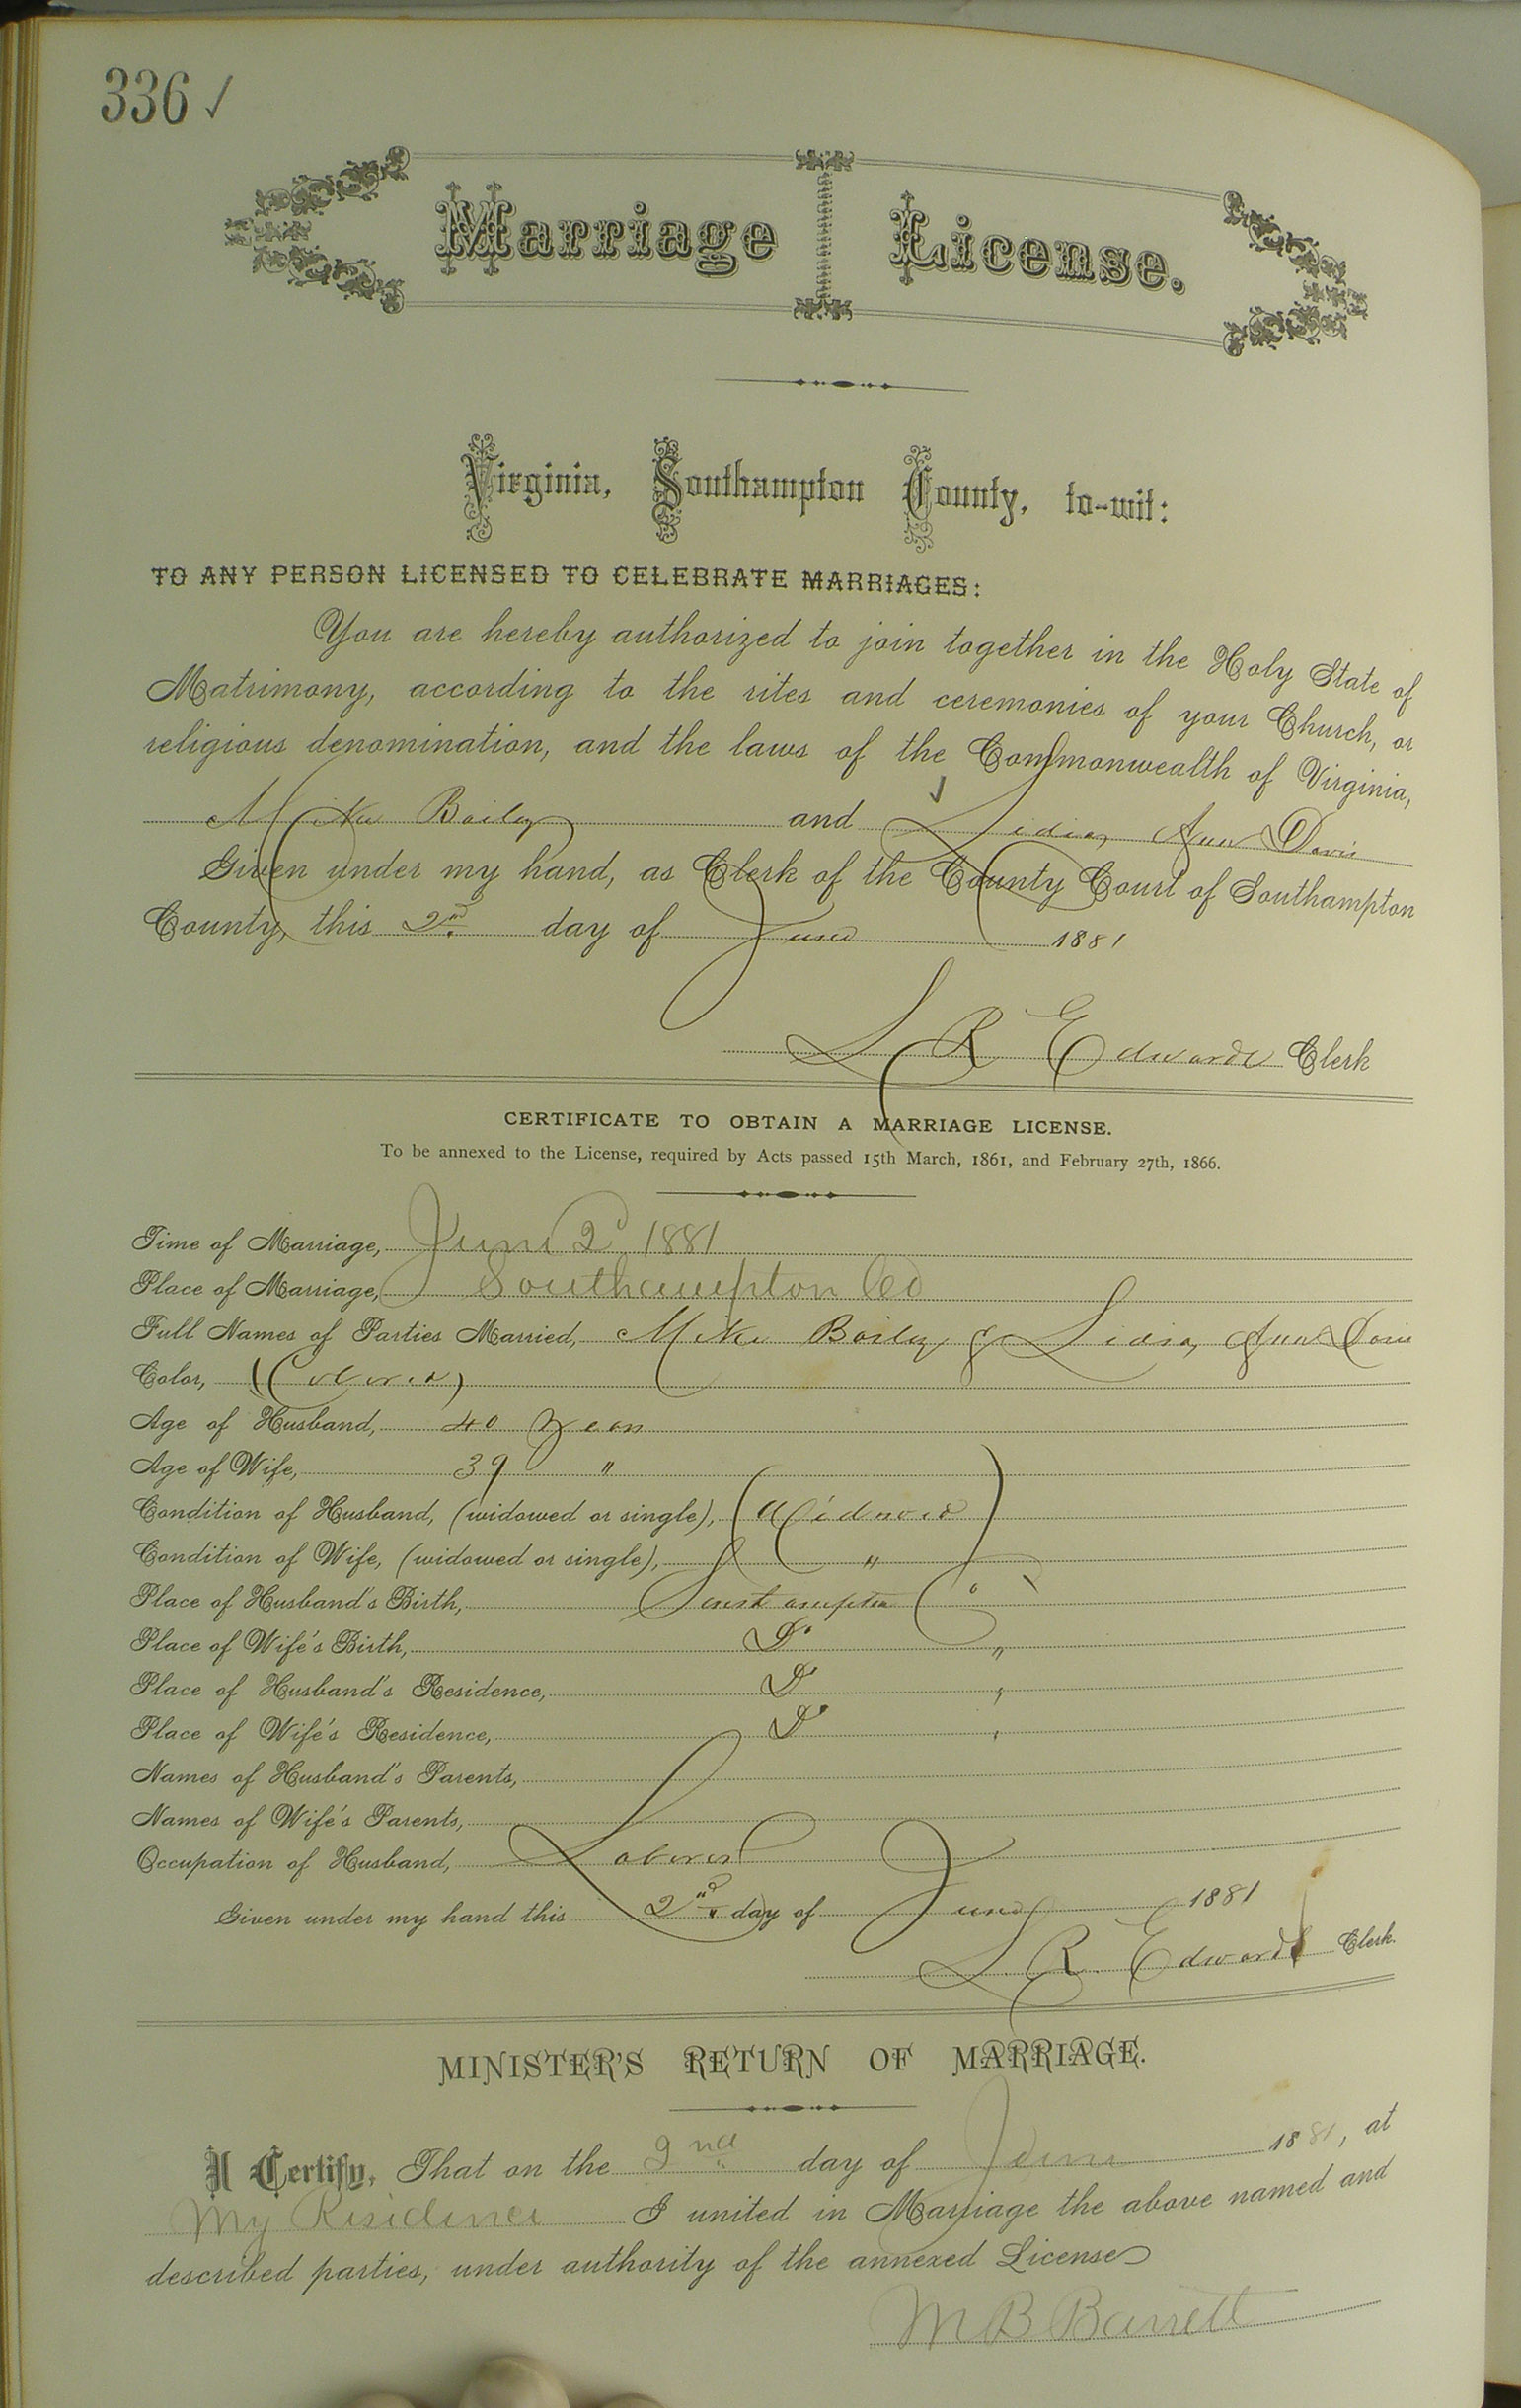 336 ✓
Marriage License.
Virginia, Southampton County, to-wit:
TO ANY PERSON LICENSED TO CELEBRATE MARRIAGES:
You are hereby authorized to join together in the Holy State of
Matrimony, according to the rites and ceremonies of your Church, or
religious denomination, and the laws of the Commonwealth of Virginia,
Mike Bailey and Lidia Ann Davis
Given under my hand, as Clerk of the County Court of Southampton
County, this 2nd day of June 1881
L R Edwards Clerk
CERTIFICATE TO OBTAIN A MARRIAGE LICENSE.
To be annexed to the License, required by Acts passed 15th March, 1861, and February 27th, 1866.
Time of Marriage, June 2d 1881
Place of Marriage, Southampton Co
Full Names of Parties Married, Mike Bailey & Lidia Ann Davis
Color, (Colored)
Age of Husband, 40 years
Age of Wife, 39 "
Condition of Husband, (widowed or single), (Widowed)
Condition of Wife, (widowed or single), "
Place of Husband's Birth, Southampton Co
Place of Wife's Birth, Do "
Place of Husband's Residence, Do "
Place of Wife's Residence, Do "
Names of Husband's Parents,
Names of Wife's Parents,
Occupation of Husband, Laborer
Given under my hand this 2nd day of June 1881
L. R. Edwards Clerk.
MINISTER'S RETURN OF MARRIAGE.
I Certify, That on the 2nd day of June 1881, at
My Residence I united in Marriage the above named and
described parties, under authority of the annexed License
M B Barrett